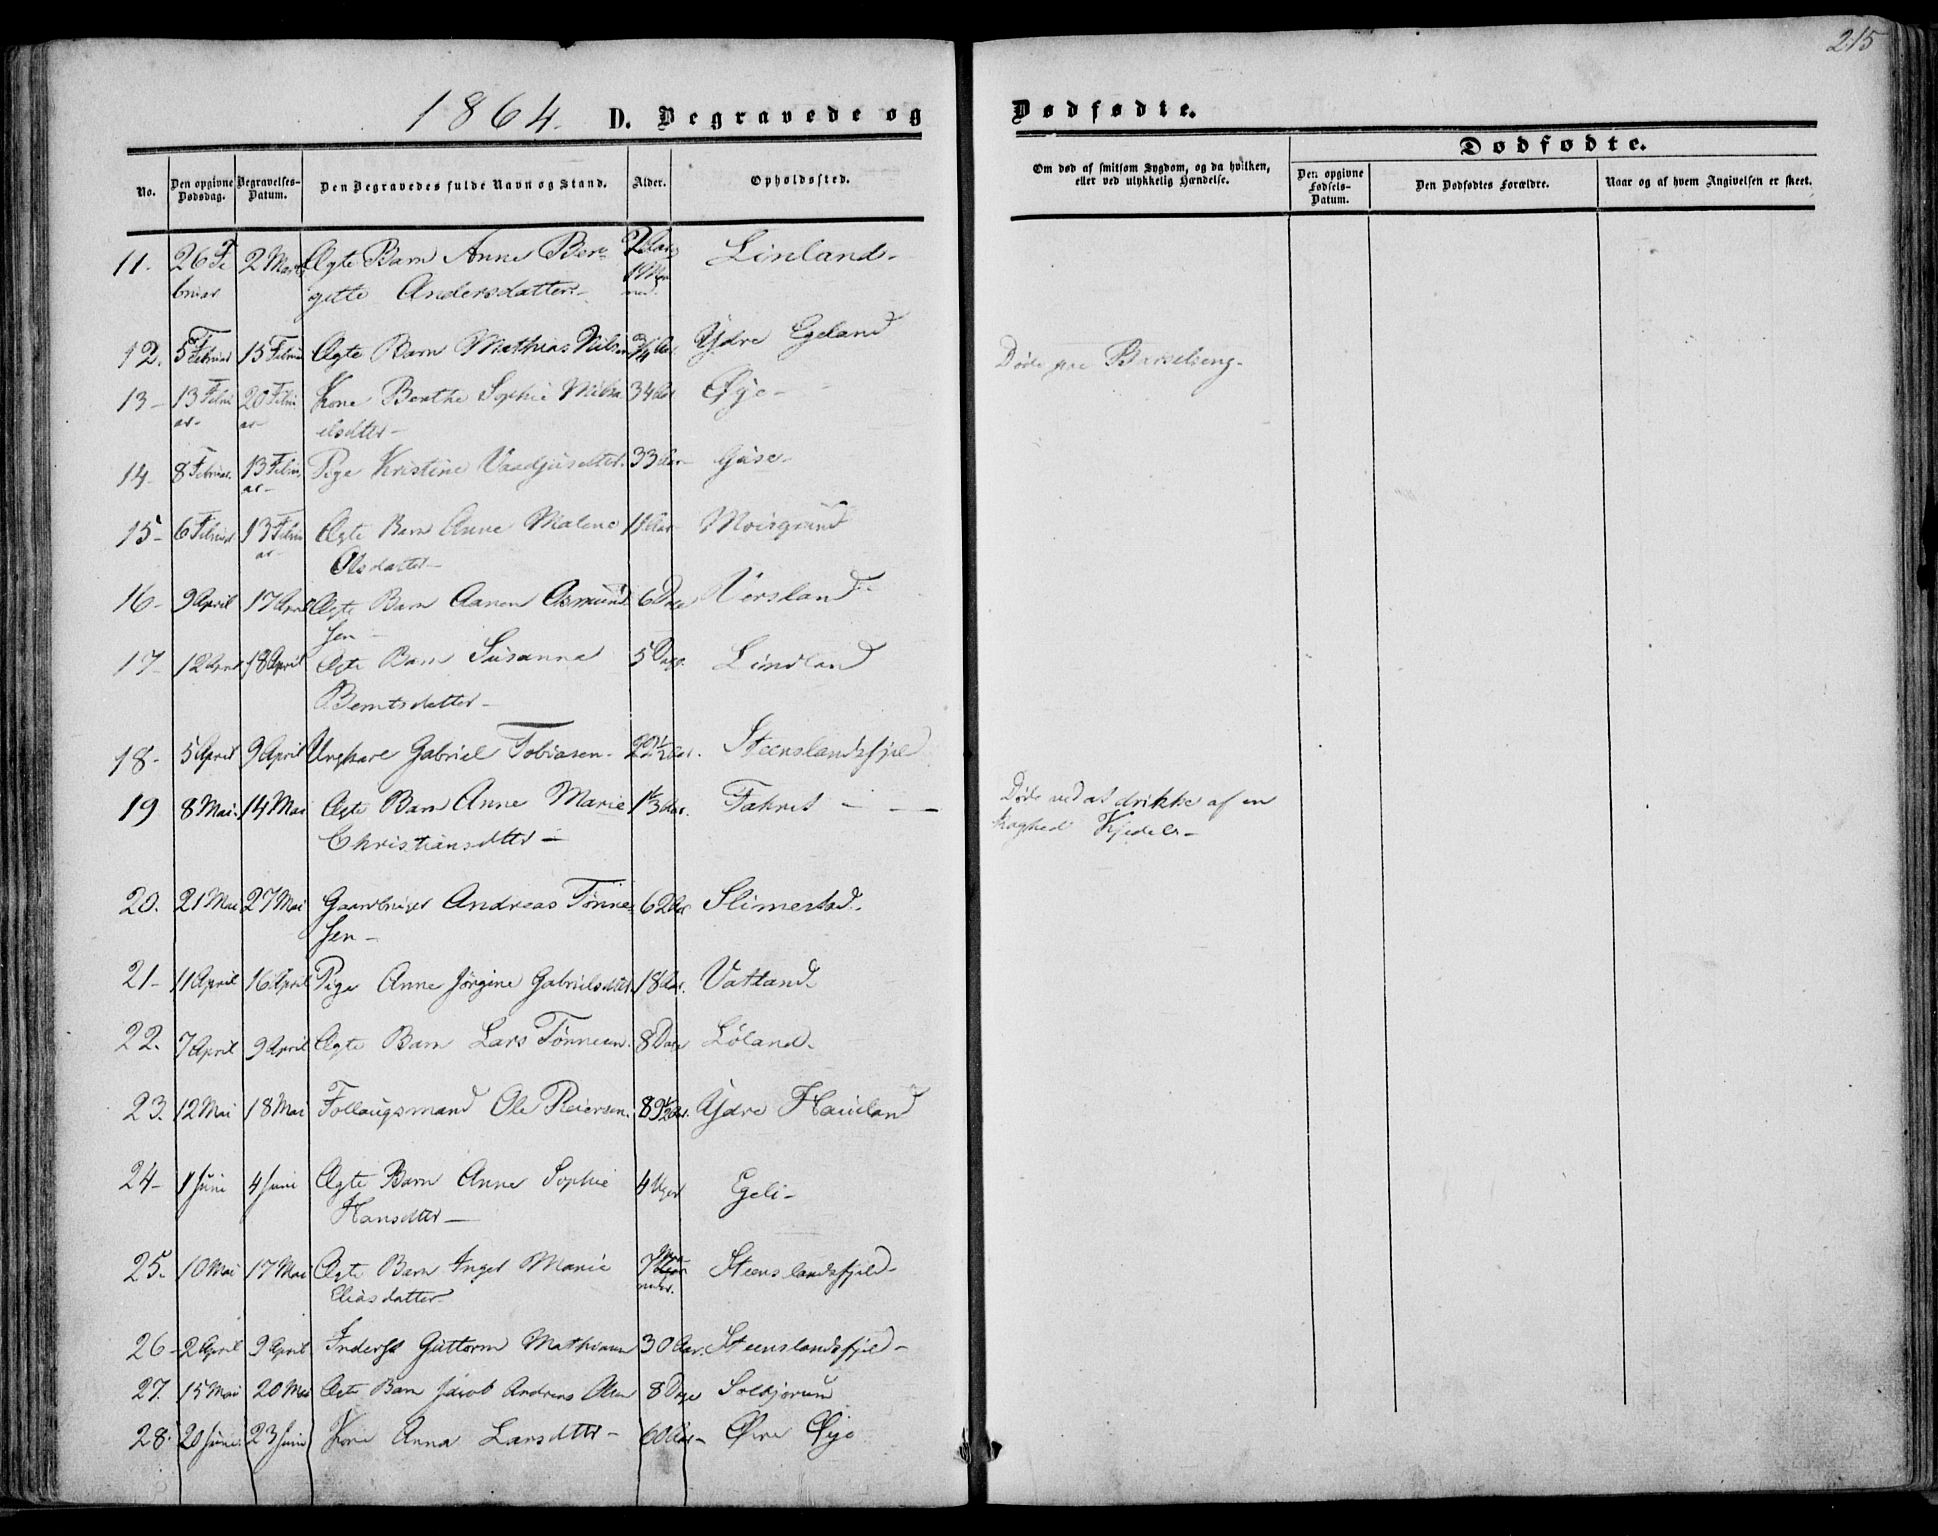 215
1864. D. Begravede og Dødfødte.
Dødfødte.
No. Den opgivne Dødsdag. Begravelses-Datum. Den Begravedes fulde Navn og Stand. Alder. Opholdssted. Om død af smitsom Sygdom, og da hvilken, eller ved ulykkelig Hændelse. Den opgivne Fødsels-Datum. Den Dødfødtes Forældre. Naar og af hvem Angivelsen er skeet.
11. 26 Fe 2 Marts Ægte Barn Anne Ber= 2 Aar Linland-
bruar gitte Andersdatter- 1 Maa
ned.
12. 5 Februar 15 Febru Ægte Barn Mathias Nilsen 3/4 Aar Ydre Egeland
Døde paa Barselseng-
13- 13 Febru 20 Febru Kone Berthe Sophie 34 Aar Øye-
ar- ar elsdtter-
14- 8 Februar. 13 Febru Pige Kristine 33 Aar- Gise-
ar-
15- 6 Februar 13 Febru Ægte Barn Anne Malene 11 Aar Moisgrund
ar- Olsdatter-
16- 9 April 17 April Ægte Barn Aanen Asmund 6 Dage Versland-
sen-
17- 12 April 18 April Ægte Barn Susanna 5 Dage Lindland
Berntsdatter-
18- 5 April 9 April Ungkare Gabriel Tobiasen- 22 1/2 Aar. Steenslandsfjeld
19 8 Mai- 14 Mai Ægte Barn Anne Marie 1 1/3 Aar. - - Døde ved at drikke af en
Christiansdtter- Kjedel-
20. 21 Mai 27 Mai Gaardbruger Andreas Tønne= 62 Aar Slimestad.
sen-
21- 11 April 16 April Pige Anne Jørgine Gabrielsdtter. 18 Aar. Vatland-
22. 7 April 9 April Ægte Barn Lars Tønnesen. 8 Dage Løland-
23. 12 Mai 18 Mai Follaugsmand Ole Reiersen. 89 1/2 Aar. Ydre Hauland
24- 1 Juni 4 Juni Ægte Barn Anne Sophie 4 Uger Egeli-
Hansdtter-
25. 10 Mai 17 Mai Ægte Barn Inger Marie 7 Maa Steenslandsfjeld-
Eliasdatter neder.
26- 2 April 9 April Inderst Guttorm Mathiasen 30 Aar. Steenslandsfjeld-
27. 15 Mai 20 Mai Ægte Barn Jacob Andreas Olsen 8 Dage Solhjørum
28. 20 Juni. 23 Juni Kone Anna Larsdtter- 60 Aar- Øvre Øye